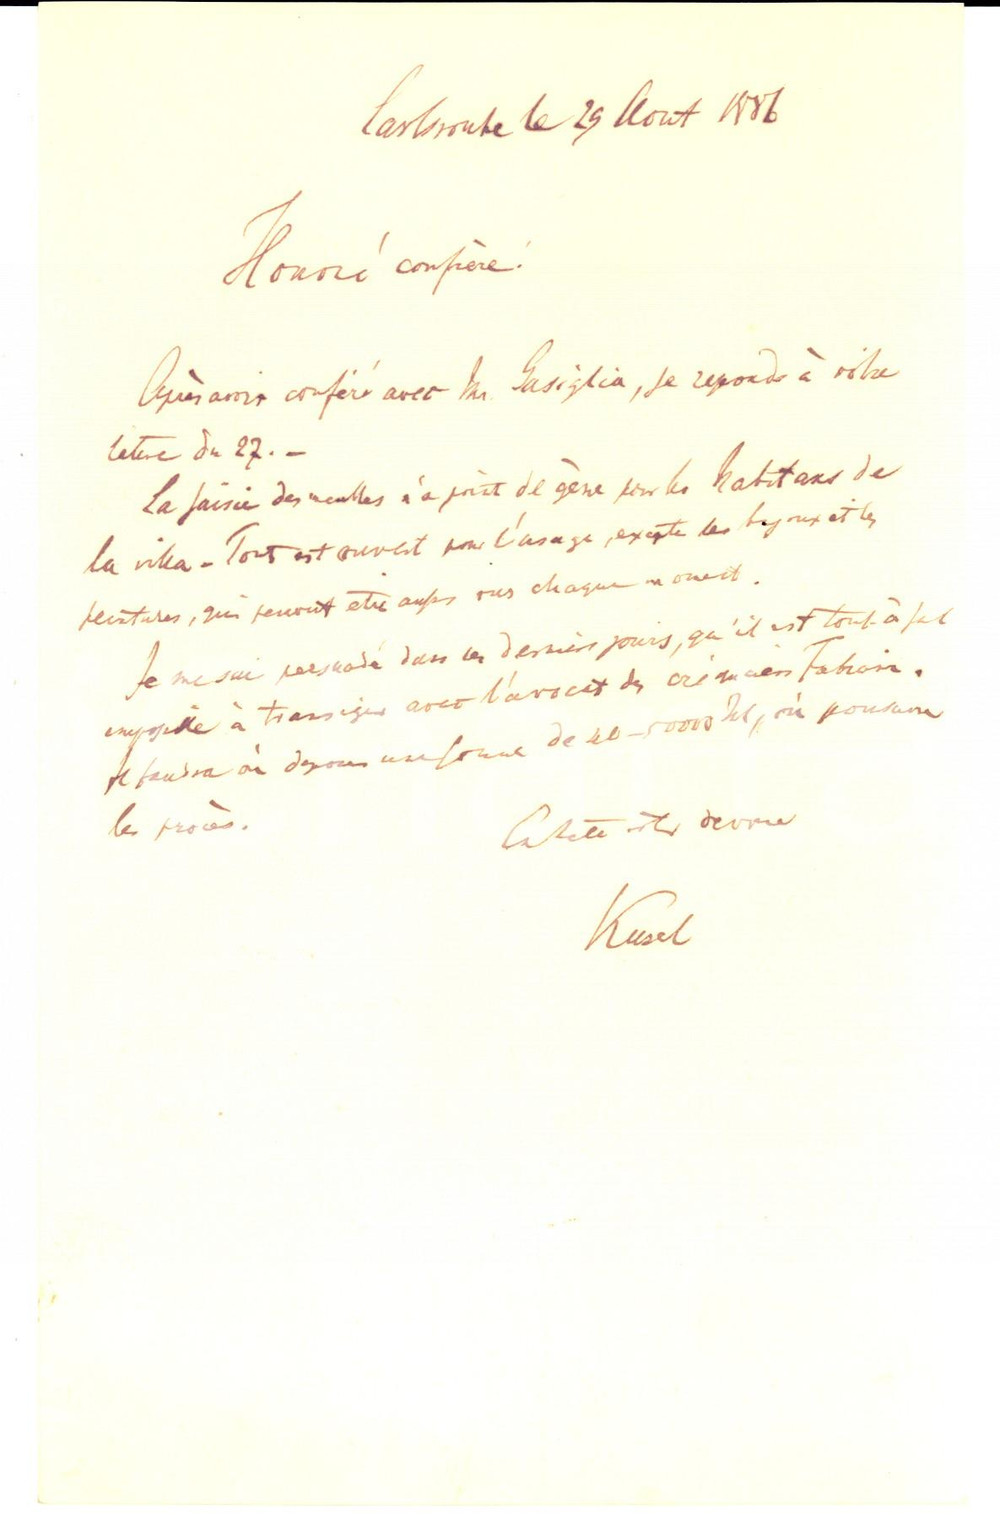 Carlsrouhe le 29 Aout 1886
Honoré confrère!
Après avoir conféré avec Mr. Gasiglia, je reponds à votre
lettre du 27. –
La saisie des meubles n'a point de gêne pour les habitans de
la villa – Tout est ouvert pour l'usage, excepté les bijoux et les
peintures, qui peuvent être chaque moment.
Je me suis persuadé dans les derniers jours, qu'il est tout à fait
impossible à transiger avec l'avocat des créanciers Fabrice.
Il faudra où deposer une somme de 40–50000 M, où poursuivre
les procès.
votre devoué
Kusel